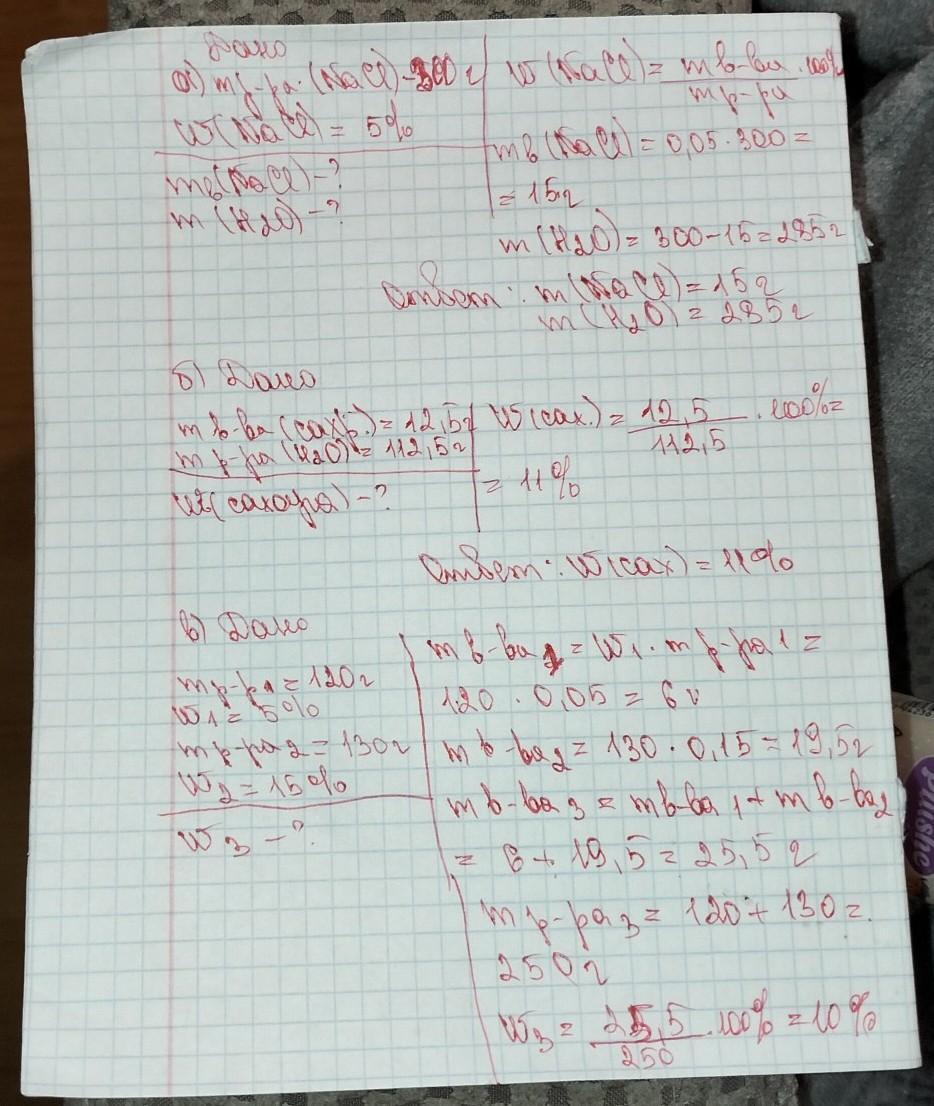 Дано
а) mр-ра (NaCl) - 300 г
w (NaCl) = 5%
mв(NaCl) - ?
m (H2O) - ?
w (NaCl) = mв-ва / mр-ра · 100%
mв (NaCl) = 0,05 · 300 =
= 15г
m (H2O) = 300 - 15 = 285г
Ответ: m(NaCl) = 15г
m (H2O) = 285г
б) Дано
m в-ва (сах.) = 12,5г
m р-ра (H2O) = 112,5г
w(сахара) - ?
w (сах.) = 12,5 / 112,5 · 100% =
= 11%
Ответ: w(сах) = 11%
в) Дано
mр-ра = 120г
w1 = 5%
mр-ра2 = 130г
w2 = 15%
w3 - ?
m в-ва1 = w1 · m р-ра 1 =
120 · 0,05 = 6 г
m в-ва2 = 130 · 0,15 = 19,5г
m в-ва3 = mв-ва1 + m в-ва2
= 6 + 19,5 = 25,5 г
m р-ра3 = 120 + 130 =
250г
w3 = 25,5 / 250 · 100% = 10%